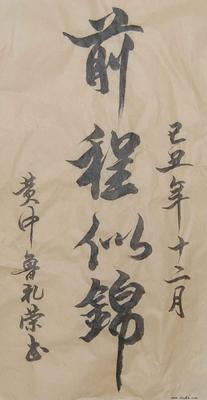 己丑年十二月
前程似錦
黄中鲁礼荣书